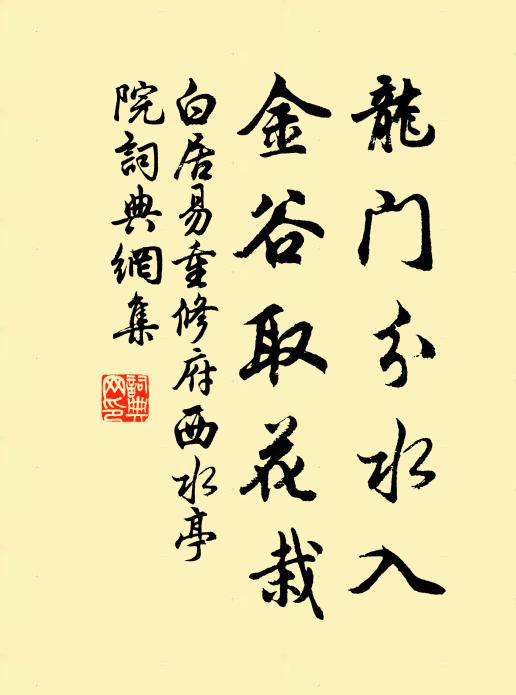 龍门分水入
金谷取花栽
白居易重修府西水亭
院詞典網集
詞典
网印